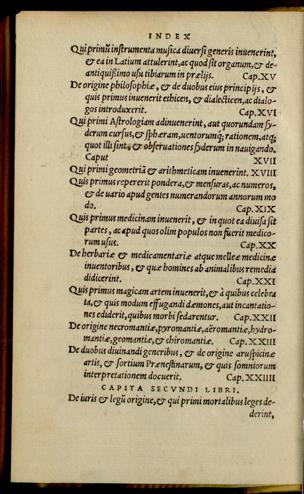 INDEX
Qui primũ instrumenta musica diuersi generis inuenerint,
& ea in Latium attulerint, ac quod sit organum, & de-
antiquissimo usu tibiarum in prælijs. Cap.XV
De origine philosophiæ, & de duobus eius principijs, &
quis primus inuenerit ethicen, & dialecticen, ac dialo-
gos introduxerit. Cap.XVI
Qui primi Astrologiam adinuenerint, aut quorundam sy-
derum cursus, & sphæram, uentorumq́; rationem, atq;
quot illi sint, & obseruationes syderum in nauigando.
Caput XVII
Qui primi geometriã & arithmeticam inuenerint. XVIII
Quis primus repererit pondera, & mensuras, ac numeros,
& de uario apud gentes numerandorum annorum mo
do. Cap.XIX
Quis primus medicinam inuenerit, & in quot ea diuisa sit
partes, ac apud quos olim populos non fuerit medico-
rum usus. Cap.XX
De herbariæ & medicamentariæ atque melleæ medicinæ
inuentoribus, & quæ homines ab animalibus remedia
didicerint. Cap.XXI
Quis primus magicam artem inuenerit, & à quibus celebra
ta, & quis modum effugandi dæmones, aut incantatio-
nes ediderit, quibus morbi sedarentur. Cap.XXII
De origine necromantiæ, pyromantiæ, aëromantiæ, hydro-
mantiæ, geomantiæ, & chiromantiæ. Cap.XXIII
De duobus diuinandi generibus, & de origine aruspicinæ
artis, & sortium Prænestinarum, & quis somniorum
interpretationem docuerit. Cap.XXIIII
CAPITA SECVNDI LIBRI.
De iuris & legũ origine, & qui primi mortalibus leges de-
derint,